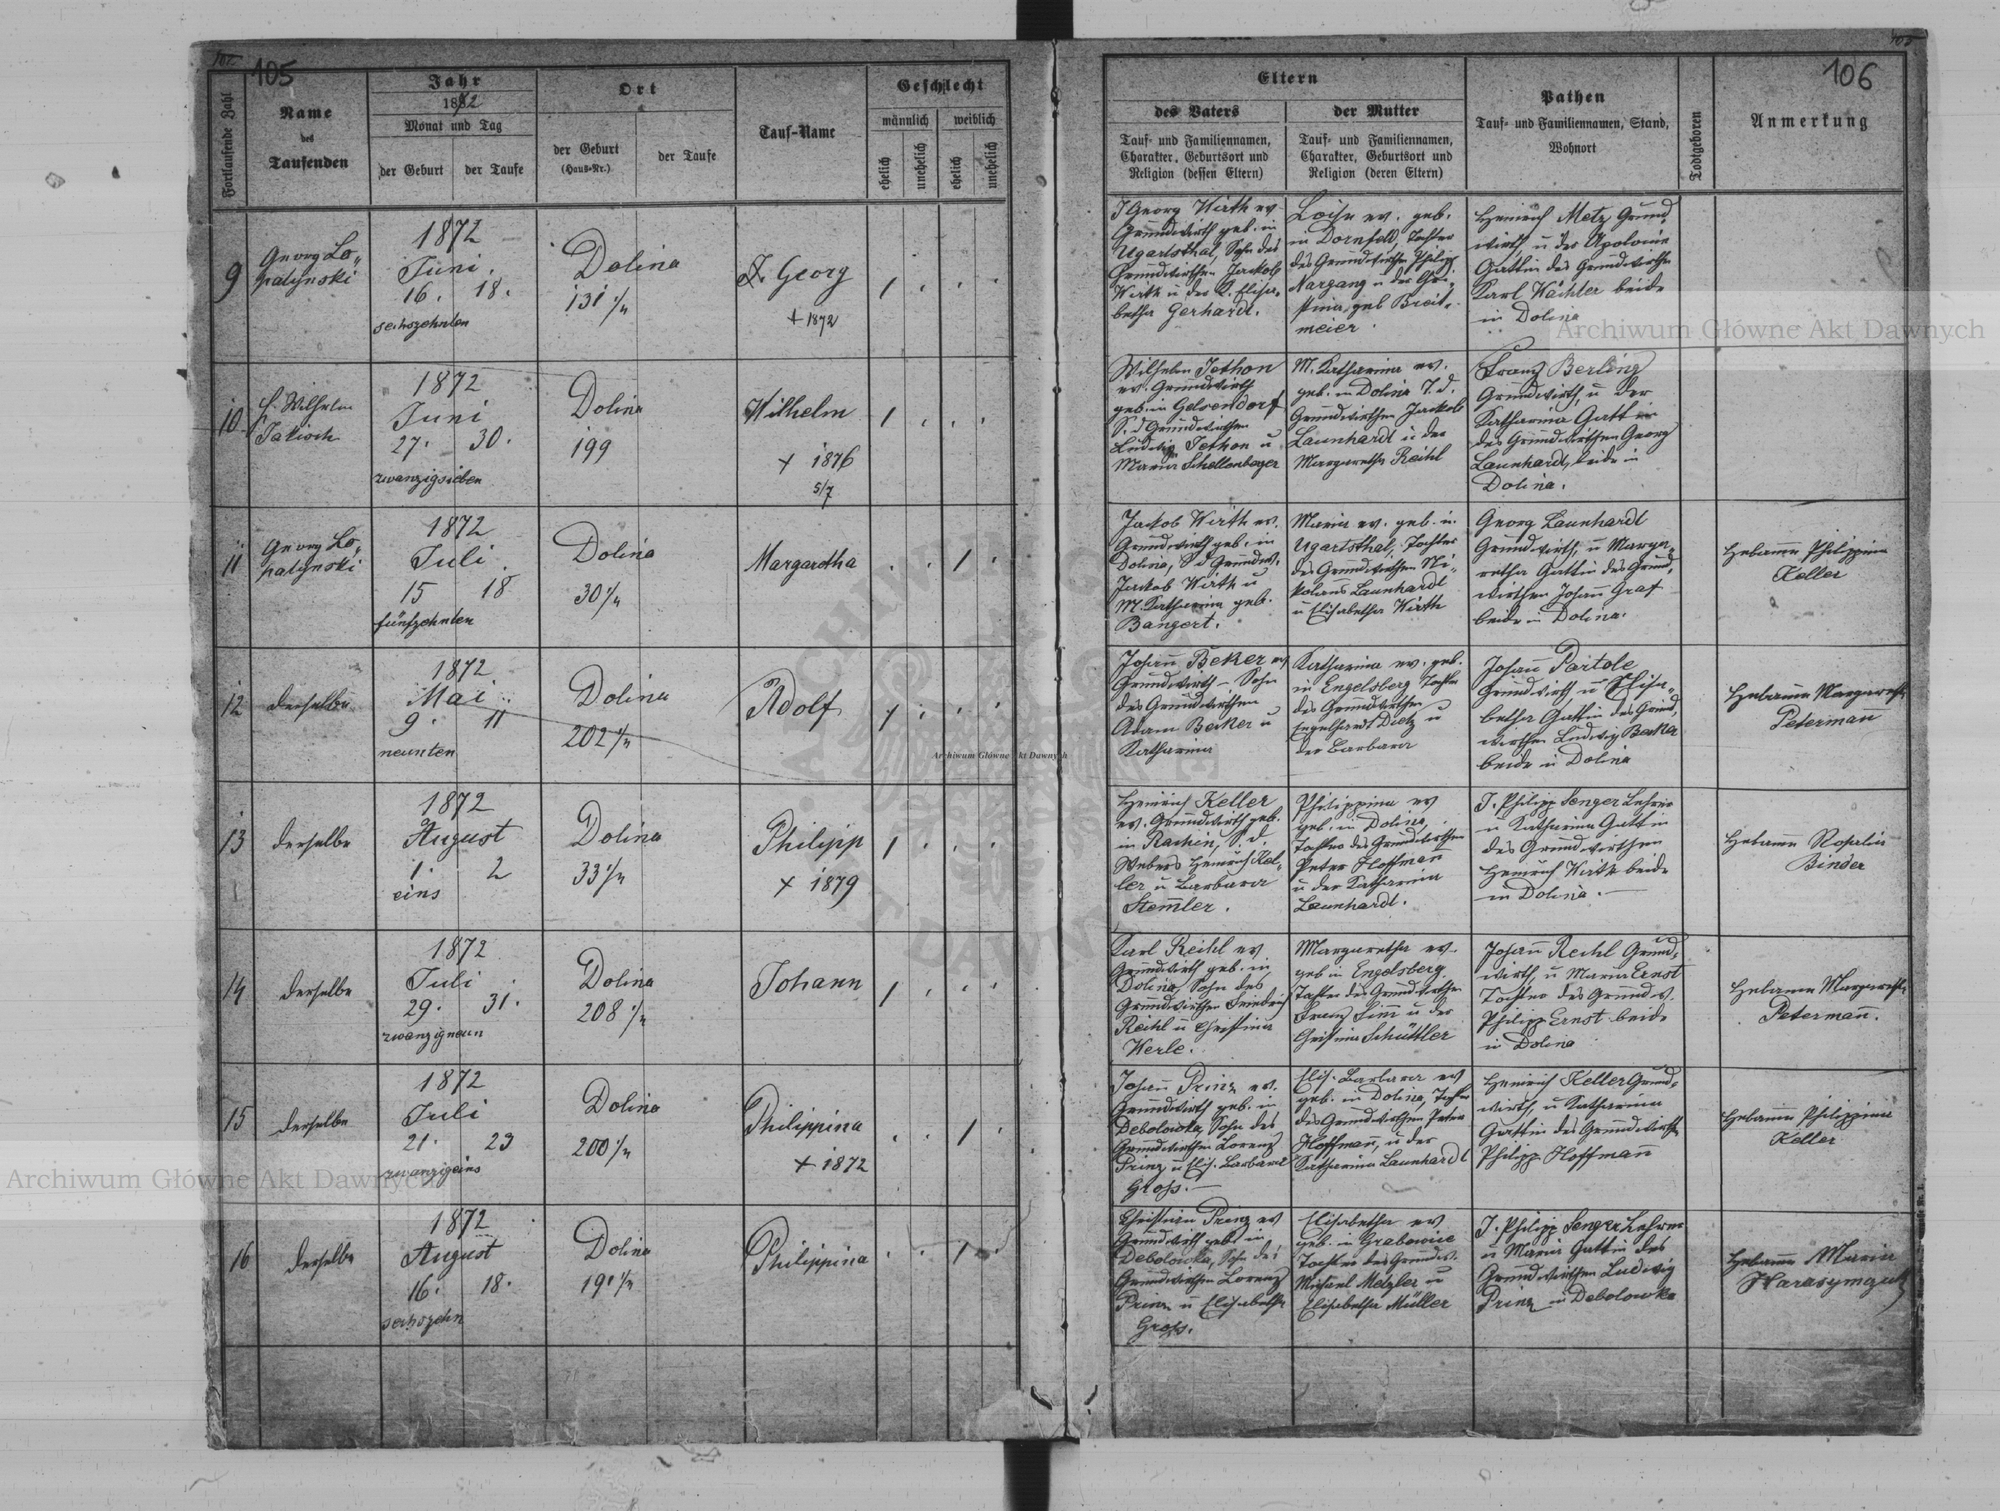 105
Fortlaufende Zahl
Name
des
Taufenden
Jahr
1872
Monat und Tag
der Geburt
der Taufe
Ort
der Geburt
(Haus-Nr.)
der Taufe
Tauf-Name
Geschlecht
männlich
weiblich
ehelich
unehelich
ehelich
unehelich
106
Eltern
des Vaters
Tauf- und Familiennamen,
Charakter, Geburtsort und
Religion (dessen Eltern)
der Mutter
Tauf- und Familiennamen,
Charakter, Geburtsort und
Religion (deren Eltern)
Pathen
Tauf- und Familiennamen, Stand,
Wohnort
Todtgeboren
Anmerkung
9
Georg Lo-
patynski
1872
Juni
16. 18.
sechszehnten
Dolina
131
J. Georg
+ 1872
J Georg Wirth ev
Grundwirth geb. in
Ugartsthal, Sohn des
Grundwirthen Jackob
Wirth u der Elisa-
betha Gerhardt.
Loise ev. geb.
in Dornfeld, Tochter
des Grundwirthen Philipp
Nargang u der Chri-
stina, geb Breit-
meier.
Heinrich Metz Grund-
wirth u der Apolonia
Gattin des Grundwirthen
Karl Wächler beide
in Dolina
10
Wilhelm
1872
Juni
27. 30.
zwanzigsieben
Dolina
199
Wilhelm
+ 1876
5/7
Wilhelm Jethon
ev. Grundwirth
geb. in Gelsendorf
S. d Grundwirthen
Ludwig Jethon u
Maria Schellenberger
M. Katharina ev.
geb. in Dolina T. d.
Grundwirthen Jackob
Launhardt u der
Margaretha Reichl
Franz Berling
Grundwirth, u der
Katharina Gattin
des Grundwirthen Georg
Launhardt, beide in
Dolina.
11
Georg Lo-
patynski
1872
Juli
15 18
fünfzehnten
Dolina
30
Margaretha
Jackob Wirth ev.
Grundwirth geb. in
Dolina, S d Grundw.
Jackob Wirth u
M. Katharina geb.
Bangert.
Maria ev. geb. in
Ugartsthal, Tochter
des Grundwirthen Ni-
kolaus Launhardt
u Elisabetha Wirth
Georg Launhardt
Grundwirth, u Marga-
retha Gattin des Grund-
wirthen Johan̄ Graf
beide in Dolina.
Hebam̄e Philippina
Keller
12
derselbe
1872
Mai
9. 11
neunten
Dolina
202
Adolf
Johan̄ Beker ev
Grundwirth – Sohn
des Grundwirthen
Adam Beker u
Katharina
Katharina ev. geb.
in Engelsberg Tochter
des Grundwirthen
Engelhardt Dietz u
der Barbara
Johan̄ Partole
Grundwirth u Elisa-
betha Gattin des Grund-
wirthen Ludwig Beker
beide in Dolina
Hebam̄e Margaretha
Peterman̄
13
derselbe
1872
August
1. 2
eins
Dolina
33
Philipp
+ 1879
Heinrich Keller
ev. Grundwirth geb.
in Rachin, S. d.
Webers Heinrich Kel-
ler u Barbara
Stem̄ler.
Philippina ev
geb. in Dolina,
Tochter des Grundwirthen
Peter Hoffman̄
u der Katharina
Launhardt.
J. Philipp Senger Lehrer
u Katharina Gattin
des Grundwirthen
Heinrich Wirth beide
in Dolina.
Hebam̄e Rosalia
Binder
14
derselbe
1872
Juli
29. 31.
zwanzigneun
Dolina
208
Johann
Karl Reichl ev
Grundwirth geb. in
Dolina, Sohn des
Grundwirthen Friedrich
Reichl u Christina
Werle.
Margaretha ev.
geb in Engelsberg
Tochter des Grundwirthen
Franz Sim̄ u der
Christina Schüttler
Johan̄ Reichl Grund-
wirth, u Maria Ernst
Tochter des Grundw.
Philipp Ernst beide
in Dolina
Hebam̄e Margaretha
Peterman̄.
15
derselbe
1872
Juli
21. 23
zwanzigeins
Dolina
200
Philippina
+ 1872
Johan̄ Prinz ev.
Grundwirth geb. in
Debolowka, Sohn des
Grundwirthen Lorenz
Prinz u Elis. Barbara
Gross.
Elis. Barbara ev
geb. in Dolina, Tochter
des Grundwirthen Peter
Hoffman̄, u der
Katharina Launhardt
Heinrich Keller Grund-
wirth, u Katharina
Gattin des Grundwirth
Philipp Hoffman̄
Hebam̄e Philippina
Keller
16
derselbe
1872
August
16. 18.
sechszehn
Dolina
191
Philippina
Christian Prinz ev
Grundwirth geb. in
Debolowka, Sohn des
Grundwirthen Lorenz
Prinz u Elisabetha
Gross.
Elisabetha ev
geb. in Grabowice
Tochter des Grundw.
Michael Metzler u
Elisabetha Müller
J. Philipp Senger Lehrer
u Maria Gattin des
Grundwirthen Ludwig
Prinz in Debolowka
Hebam̄e Maria
Harasymczuk
Archiwum Główne Akt Dawnych
Archiwum Główne Akt Dawnych
Archiwum Główne Akt Dawnych